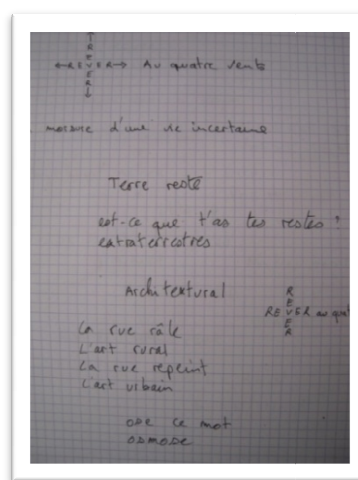 R
E
←REVER→ Au quatre vents
E
R
↓
morsure d'une vie incertaine
Terre reste
est-ce que t'as tes restes ?
extraterrestres
Architextural
R
E
REVER au quat
E
R
La rue râle
L'art rural
La rue repeint
L'art urbain
ODE ce mot
ODMODE